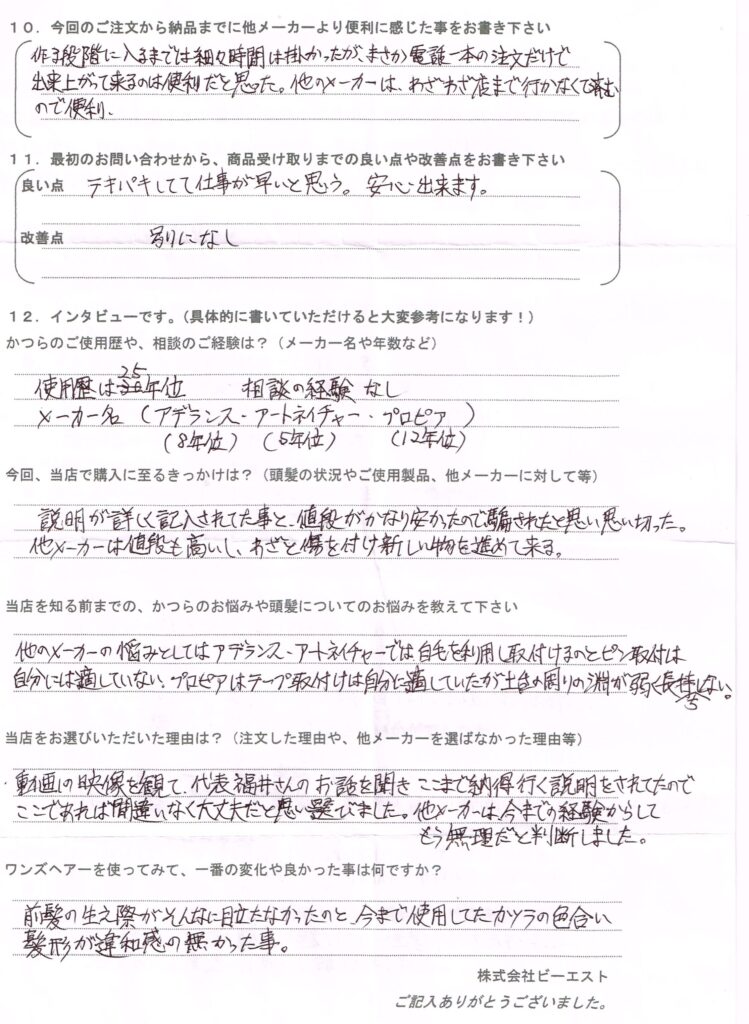 １０．今回のご注文から納品までに他メーカーより便利に感じた事をお書き下さい
作る段階に入るまでは細々時間は掛かったが、まさか電話一本の注文だけで
出来上がって来るのは便利だと思った。他のメーカーは、わざわざ店まで行かなくて済む
ので便利.
１１．最初のお問い合わせから、商品受け取りまでの良い点や改善点をお書き下さい
良い点　テキパキしてて仕事が早いと思う。安心出来ます。
改善点　別になし
１２．インタビューです。（具体的に書いていただけると大変参考になります！）
かつらのご使用歴や、相談のご経験は？（メーカー名や年数など）
25
使用歴は年位　相談の経験 なし
メーカー名（アデランス・アートネイチャー・プロピア）
（8年位）（5年位）（12年位）
今回、当店で購入に至るきっかけは？（頭髪の状況やご使用製品、他メーカーに対して等）
説明が詳しく記入されてた事と、値段がかなり安かったので騙されたと思い思い切った。
他メーカーは値段も高いし、わざと傷を付け新しい物を進めて来る。
当店を知る前までの、かつらのお悩みや頭髪についてのお悩みを教えて下さい
他のメーカーの悩みとしてはアデランス・アートネイチャーでは自毛を利用し取付けるのとピン取付は
自分には適していない、プロピアはテープ取付けは自分に適していたが土台の周りの淵が弱く長持しない。
ち
当店をお選びいただいた理由は？（注文した理由や、他メーカーを選ばなかった理由等）
・動画の映像を観て、代表福井さんのお話を聞きここまで納得行く説明をされてたので
ここであれば間違いなく大丈夫だと思い選びました。他メーカーは今までの経験からして
もう無理だと判断しました。
ワンズヘアーを使ってみて、一番の変化や良かった事は何ですか？
前髪の生え際がそんなに目立たなかったのと、今まで使用してたカツラの色合い
髪形が違和感の無かった事。
株式会社ビーエスト
ご記入ありがとうございました。